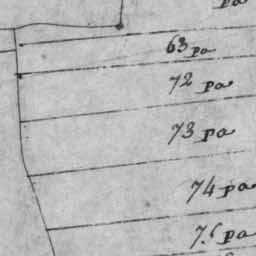 pa
63 pa
72 pa
73 pa
74 pa
75 pa